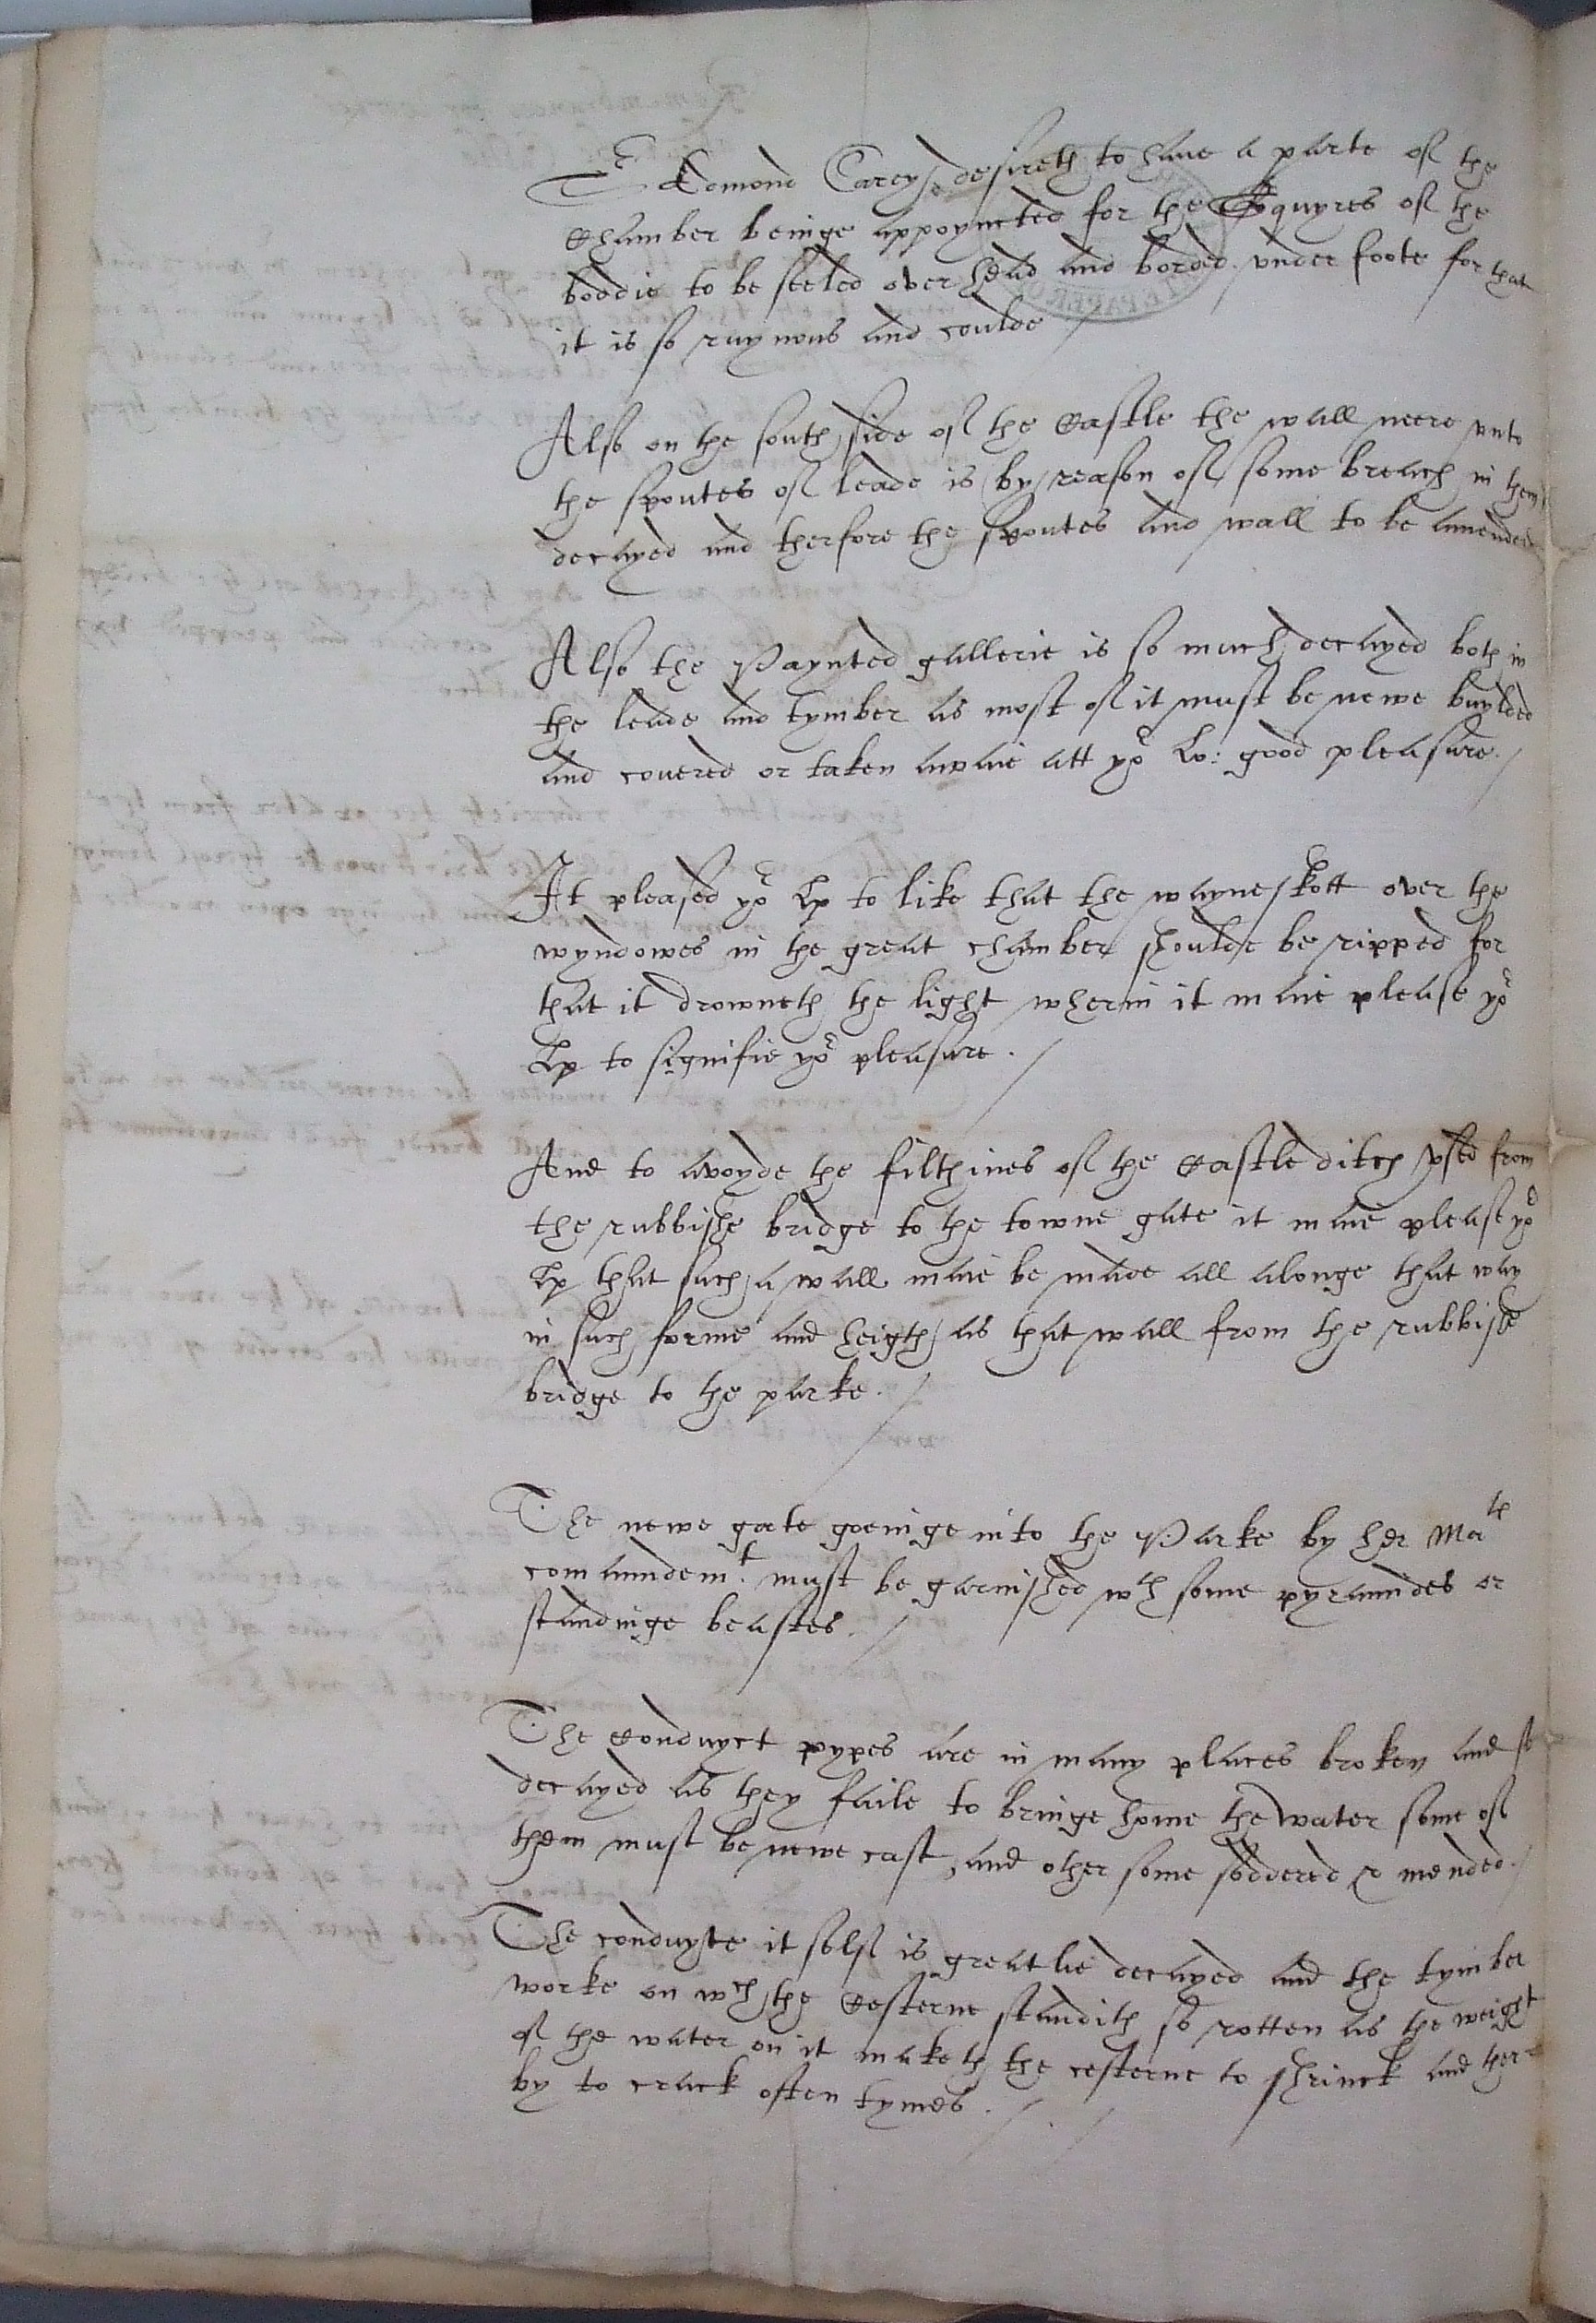 Edmond Carey desireth to haue a parte of the
Chamber beinge appoyncted for the Esquyres of the
boddie to be seeled over head and borded vnder foote for that
it is so ruynous and coulde /
Also on the south side of the Castle the wall neere vnto
the spoutes of leade is by reason of some breach in them
decayed and therfore the spoutes and wall to be amended
Also the Paynted gallerie is so much decayed both in
the leade and tymber as most of it must be newe buylded
and couered or taken awaie att yor Lo: good pleasure. /
It pleased yor Lp to like that the wayneskott over the
wyndowes in the great chamber shoulde be ripped for
that it drowneth the light wherin it maie please yor
Lp to signifie yor pleasure. /
And to avoyde the filthines of the Castle ditch vsed from
the rubbishe bridge to the towne gate it maie please yor
Lp that such a wall maie be made all alonge that way
in such forme and heigth as that wall from the rubbishe
bridge to the parke. /
The newe gate goeinge into the Parke by her Matis
comaundemt. must be garnished wth some pyramides or
standinge beastes. /
The Conduyct pypes are in many places broken and so
decayed as they faile to bringe home the water some of
them must be newe cast, and other some soddered & mended. /
The conduyte it self is greatlie decayed and the tymber
worke on wch the Cesterne standith so rotten as the weight
of the water on it maketh the cesterne to shrinck and ther=
by to crack often tymes. / /